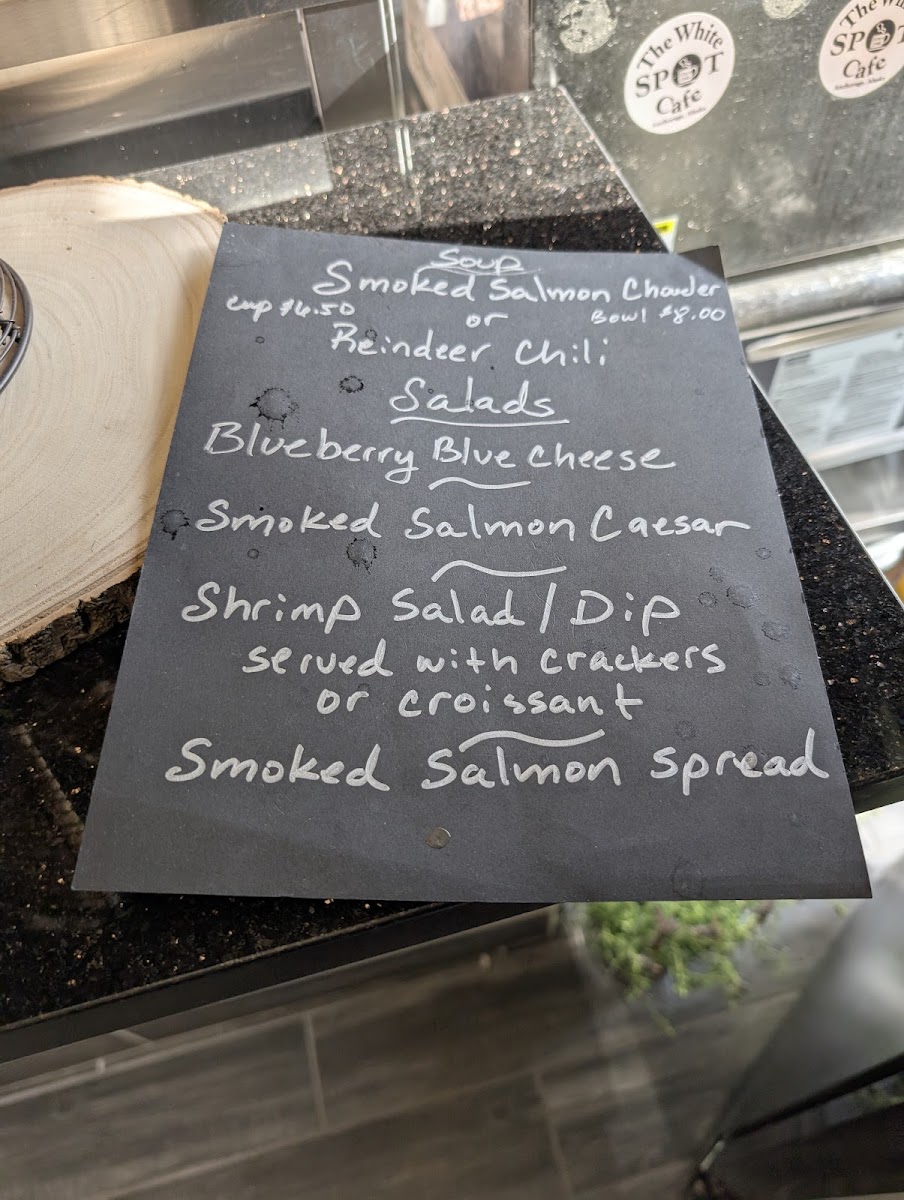 The White
SPOT
Cafe
Anchorage, Alaska
The Whi
SPOT
Cafe
Soup
Smoked Salmon Chowder
cup $6.50 or Bowl $8.00
Reindeer Chili
Salads
Blueberry Blue cheese
Smoked Salmon Caesar
Shrimp Salad / Dip
served with crackers
or croissant
Smoked Salmon spread